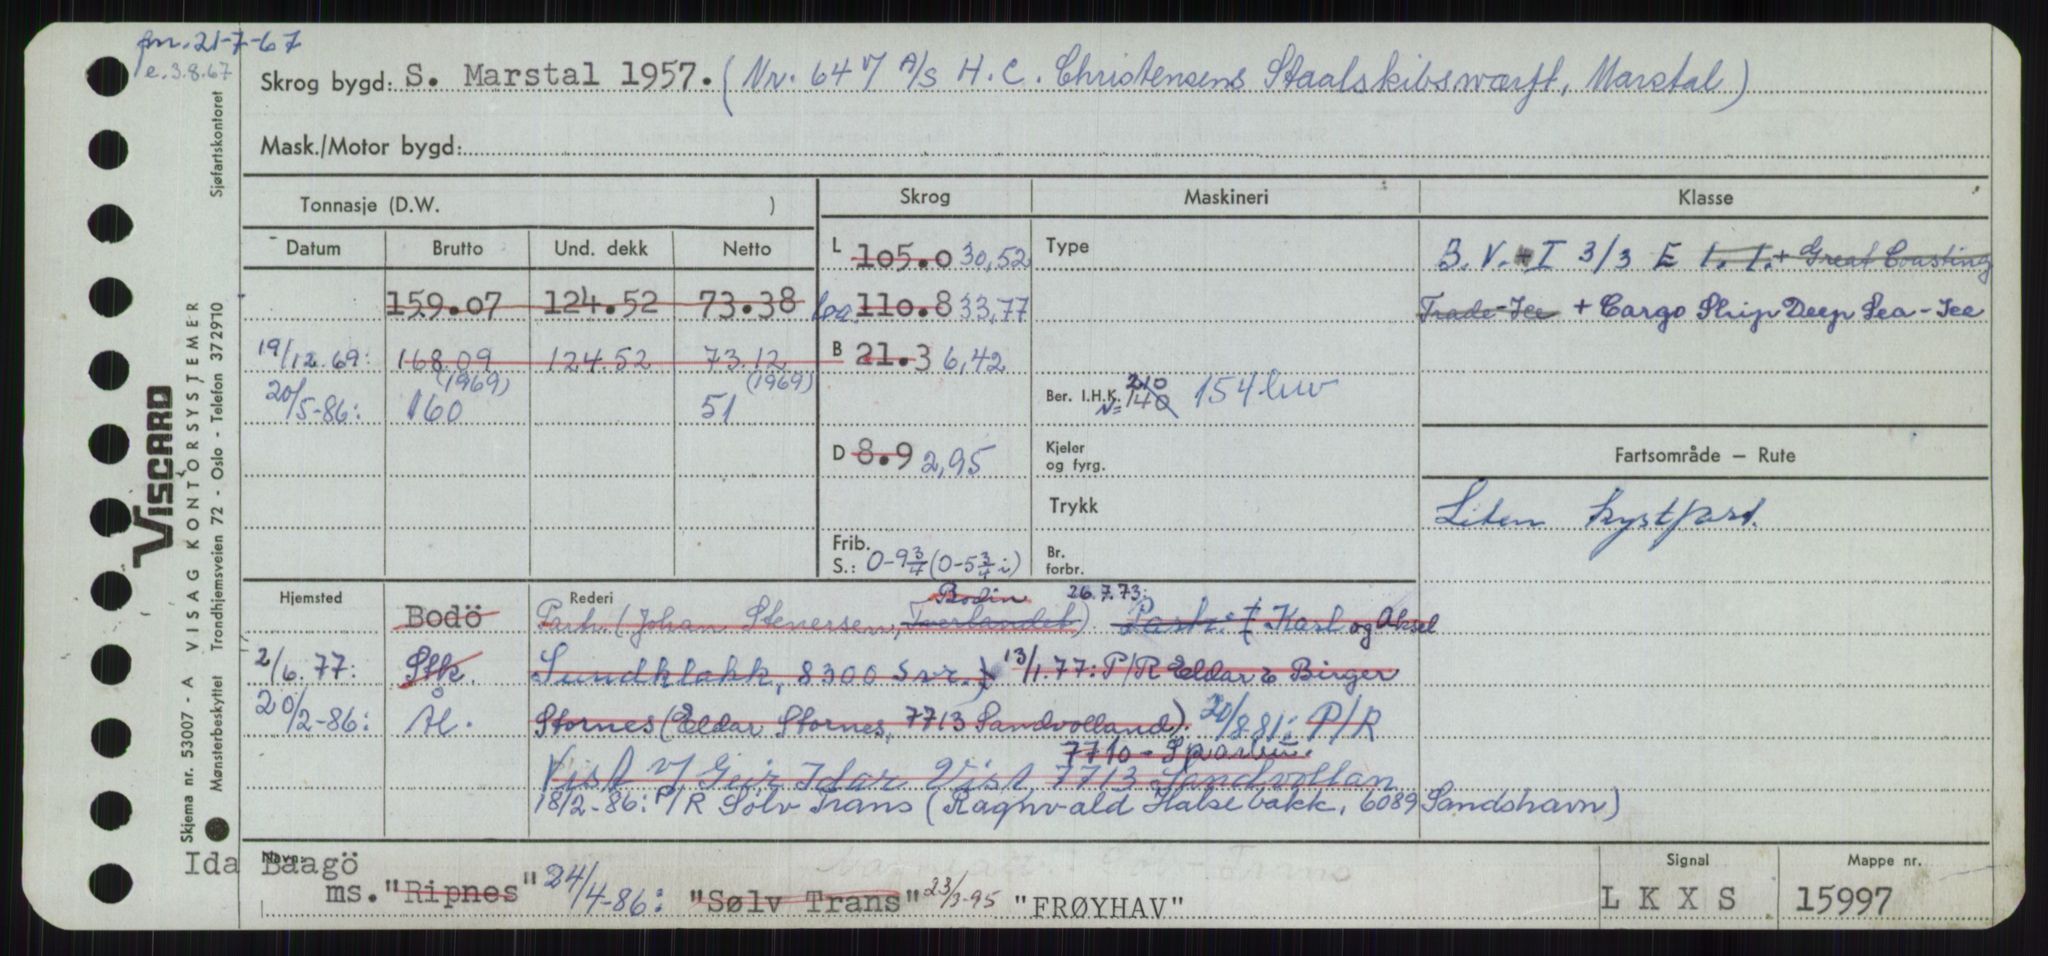 fm. 21-7-67
e. 3.8.67
Skrog bygd: S. Marstal 1957. (Nr. 64 v/ A/S H. C. Christensens Staalskibsværft, Marstal)
Mask./Motor bygd:
Tonnasje (D.W. )
Skrog Maskineri Klasse
Datum Brutto Und. dekk Netto
L 105.0 30,52
Type
B. V. + I 3/3 E 1. 1. + Great Coasting
159.07 124.52 73.38
Loa. 110.8 33,77
Trade-Ice + Cargo Ship Deep Sea-Ice
19/12.69: 168.09 124.52 73.12
(1969) (1969)
B 21.3 6,42
20/5-86: 160 51
Ber. I.H.K. 210
N= 140 154 kw
D 8.9 2,95
Kjeler
og fyrg.
Fartsområde – Rute
Trykk
Liten kystfart.
Frib.
S.: 0-9 3/4 (0-5 3/4 i)
Br.
forbr.
Hjemsted Rederi
Bodin 26.7.73:
Bodö Partr. (Johan Stenersen, Tverlandet). Partr. v/ Karl og Aksel
2/6.77: Stk. Sundklakk, 8300 Svr.) 13/1.77: P/R Eldar & Birger
20/2-86: Ål. Stornes (Eldar Stornes, 7713 Sandvolland). 20/8.81: P/R
7710 - Sparbu.
Vist v/ Geir Idar Vist, 7713 Sandvollan
18/2-86: P/R Sølv Trans (Ragnvald Halsebakk, 6089 Sandshavn)
Navn:
Ida Baagö
ms. "Ripnes" 24/4-86: "Sølv Trans" 23/3-95 "FRØYHAV"
Signal
L K X S
Mappe nr.
15997
VISCARD
Skjema nr. 53007 - A VISAG KONTORSYSTEMER
Mønsterbeskyttet Trondhjemsveien 72 - Oslo - Telefon 372910 Sjøfartskontoret